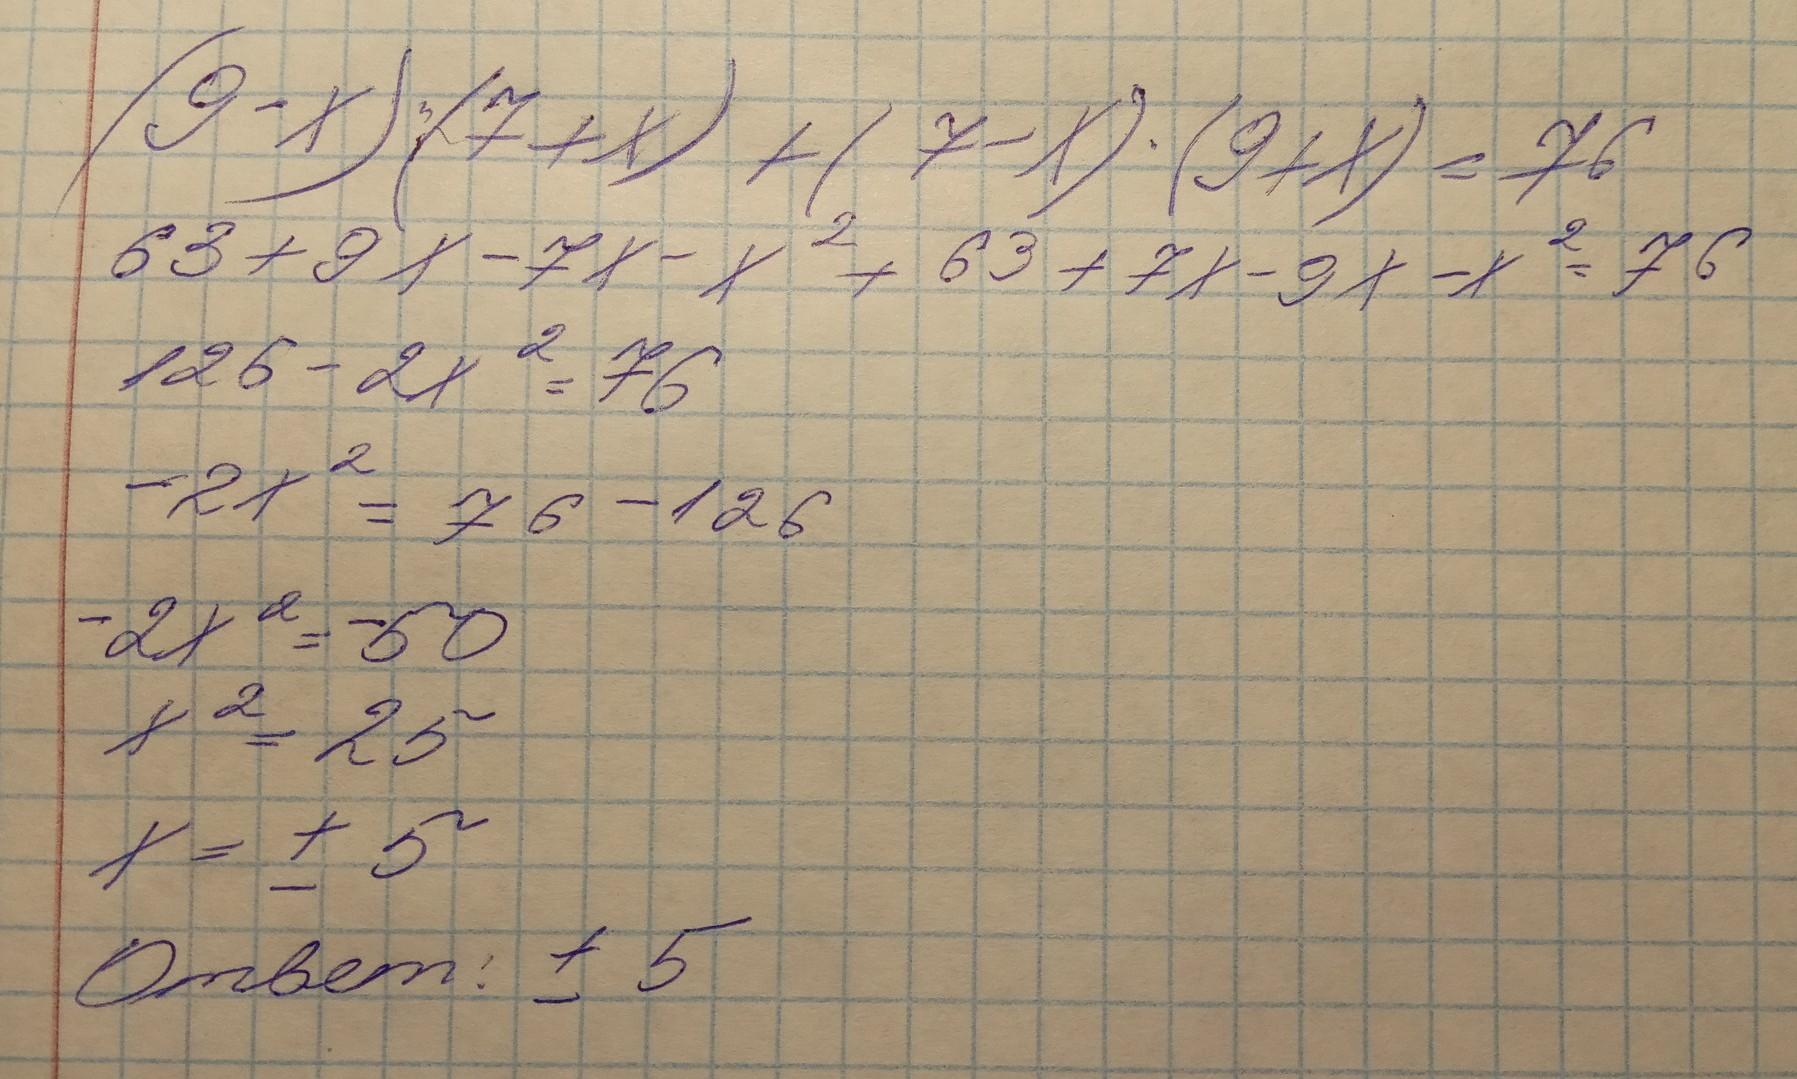 (9-x)·(7+x)+(7-x)·(9+x)=76
63+9x-7x-x²+63+7x-9x-x²=76
126-2x²=76
-2x²=76-126
-2x²=-50
x²=25
x=±5
Ответ: ±5